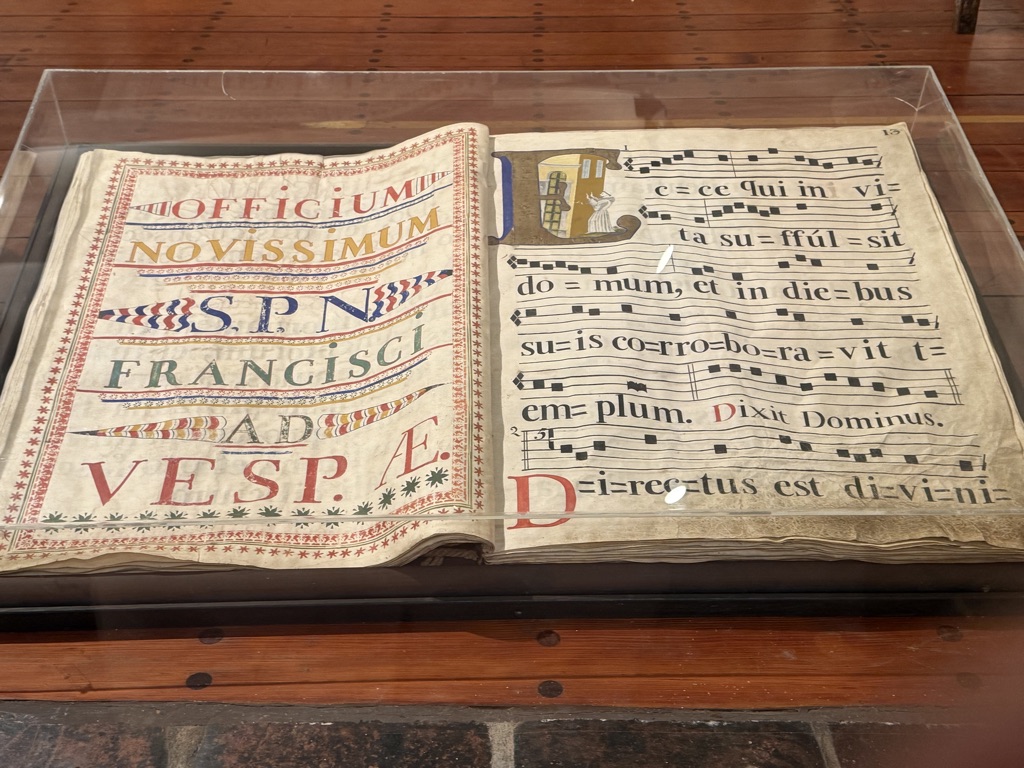 OFFICIUM
NOVISSIMUM
S. P. N
FRANCISCI
AD
VESP. Æ.
13
1
Ec=ce qui in vi=
ta su=ffúl=sit
do=mum, et in die=bus
su=is co=rro=bo=ra=vit t=
em=plum. Dixit Dominus.
2
D=i=rec=tus est di=vi=ni=